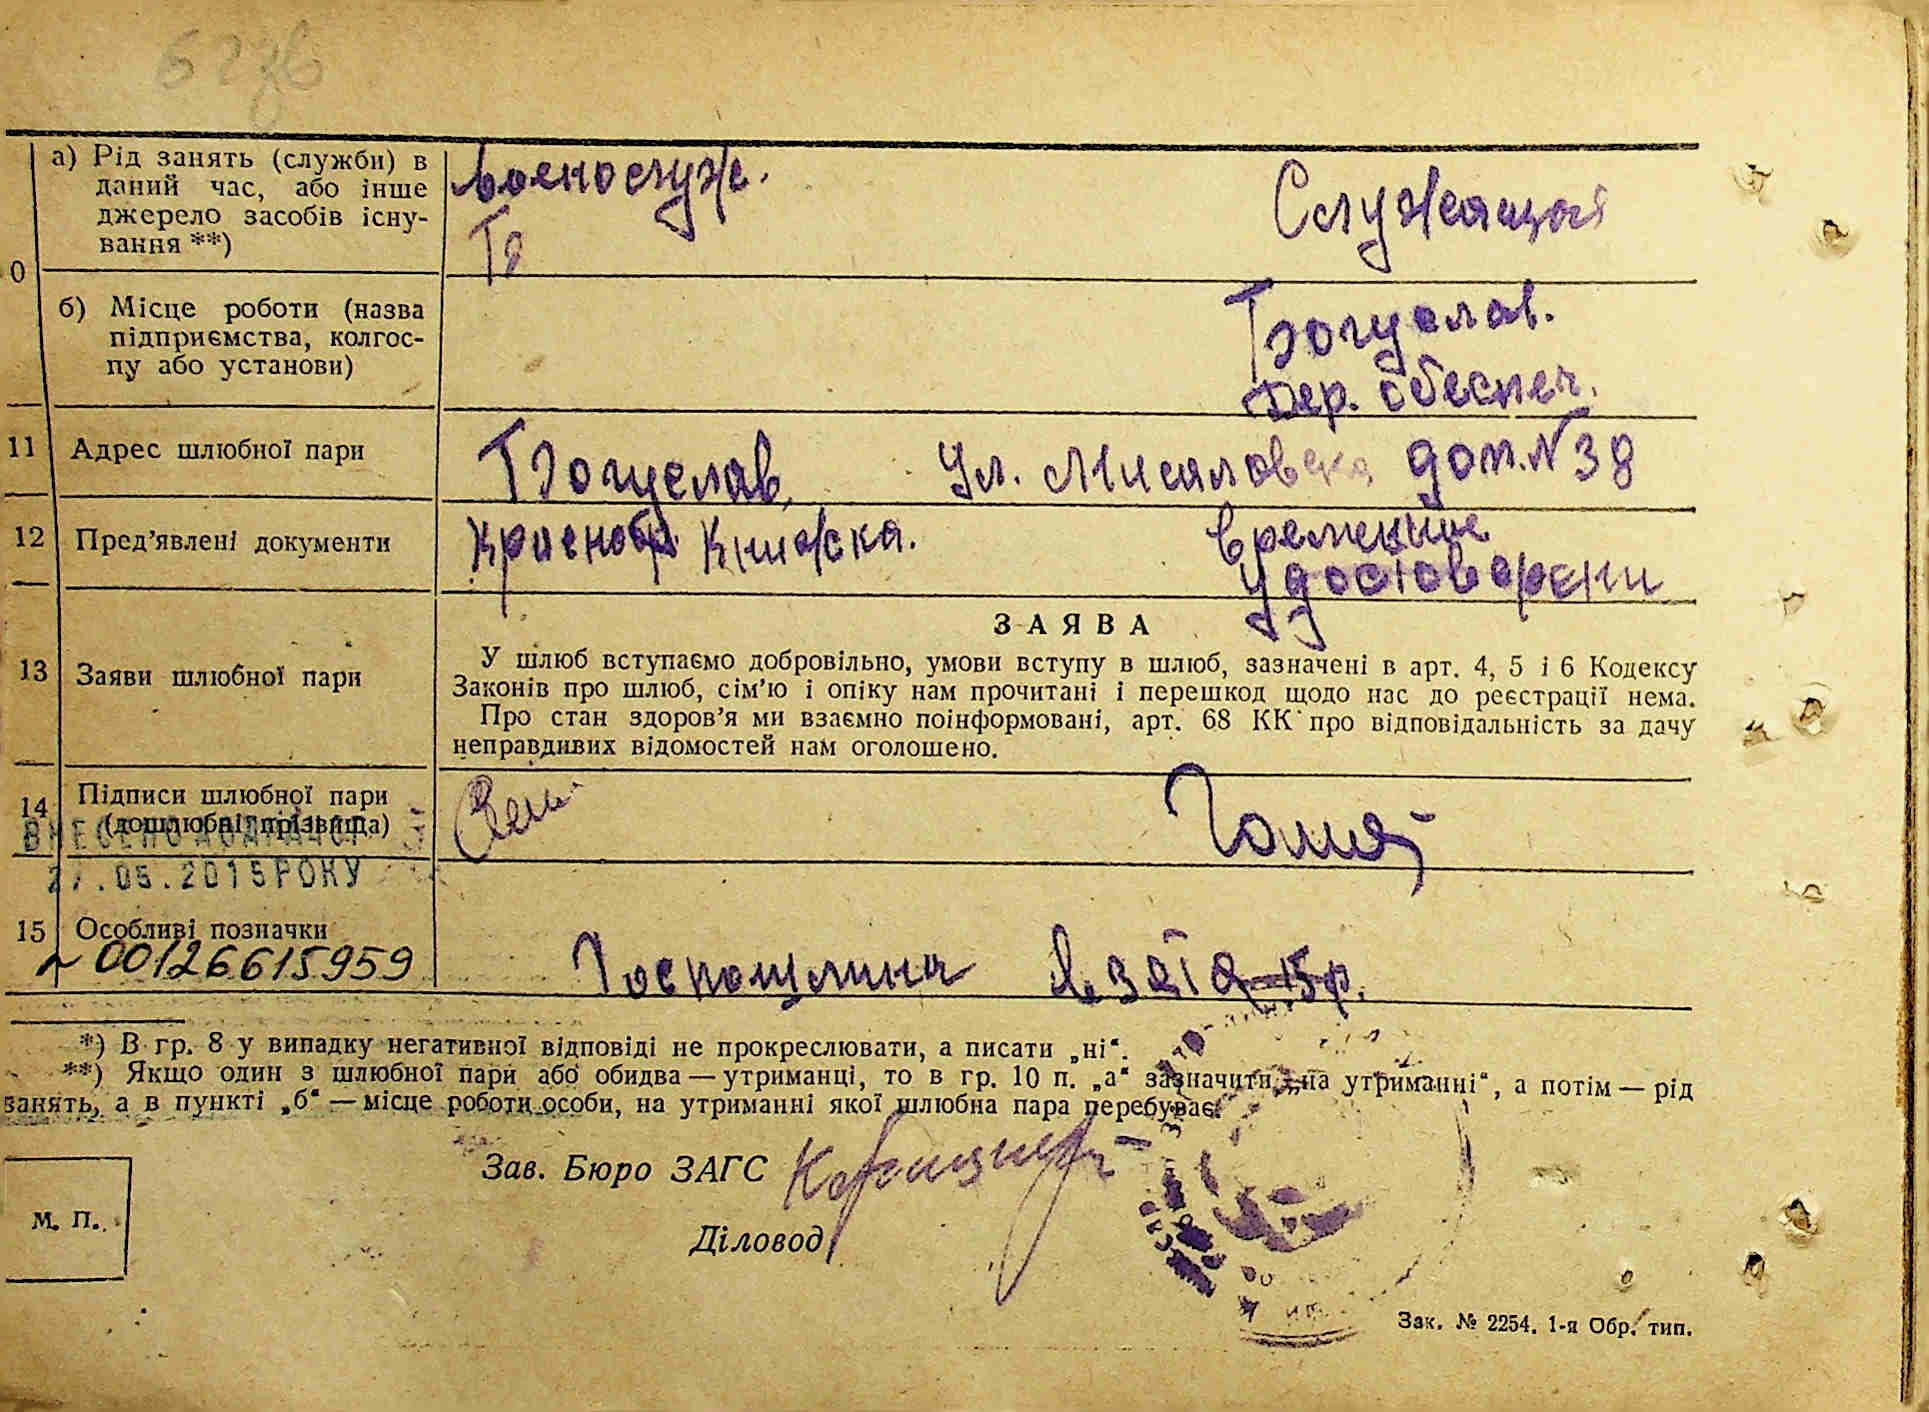 627в
а) Рід занять (служби) в
даний час, або інше
джерело засобів існу-
вання **)
военослуж.
Служащая
0
б) Місце роботи (назва
підприємства, колгос-
пу або установи)
Богуслав.
Дер. обеспеч.
11 Адрес шлюбної пари
Богуслав, Ул. Мисяловска дом. № 38
12 Пред’явлені документи
Красноар. Книжка.
Временное
удостоверени
ЗАЯВА
13 Заяви шлюбної пари
У шлюб вступаємо добровільно, умови вступу в шлюб, зазначені в арт. 4, 5 і 6 Кодексу
Законів про шлюб, сім’ю і опіку нам прочитані і перешкод щодо нас до реєстрації нема.
Про стан здоров’я ми взаємно поінформовані, арт. 68 КК про відповідальність за дачу
неправдивих відомостей нам оголошено.
14 Підписи шлюбної пари
(дошлюбні прізвища)
27.05.2015 РОКУ
15 Особливі позначки
00126615959
Госпошлина
15 р.
*) В гр. 8 у випадку негативної відповіді не прокреслювати, а писати „ні“.
**) Якщо один з шлюбної пари або обидва — утриманці, то в гр. 10 п. „а“ зазначити „на утриманні“, а потім — рід
занять, а в пункті „б“ — місце роботи особи, на утриманні якої шлюбна пара перебуває.
Зав. Бюро ЗАГС
М. П.
Діловод
Зак. № 2254. 1-я Обр. тип.